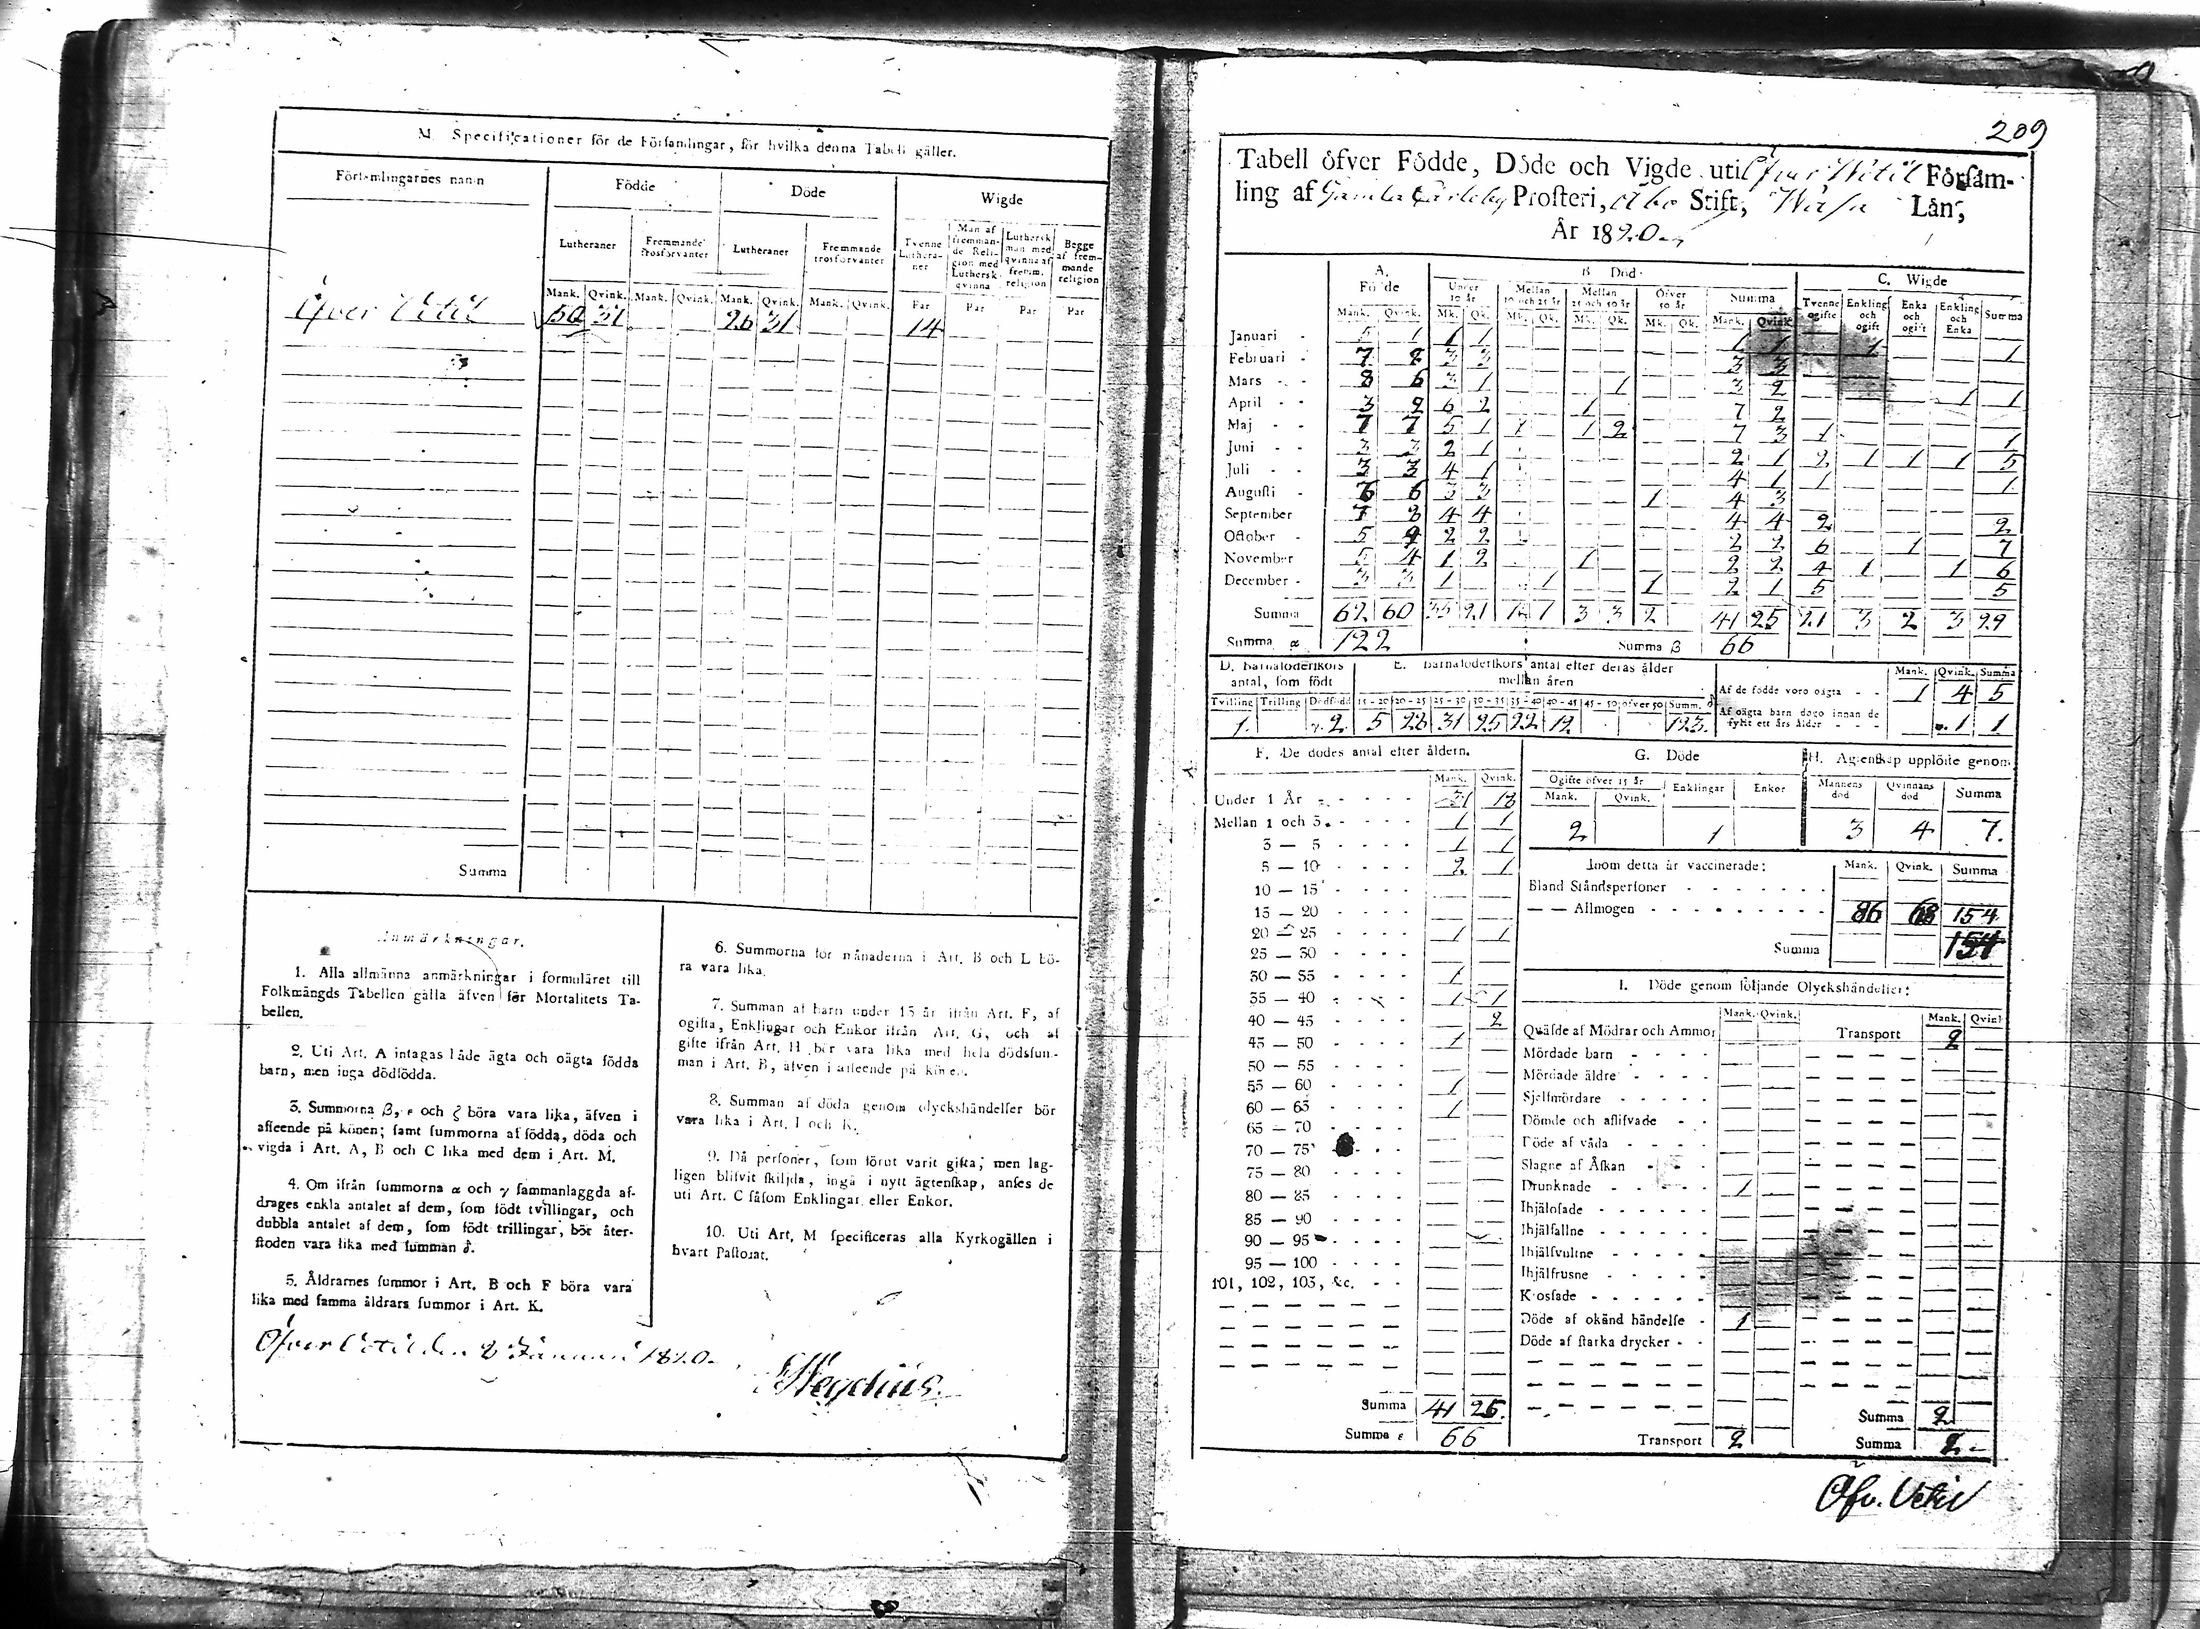 M. Specificationer för de Församlingar, för hvilka denna Tabell gäller.
Församlingarnes namn
Födde
Döde
Wigde
Lutheraner
Fremmande trosförvanter
Lutheraner
Fremmande trosförvanter
Tvenne Lutheraner
Man af fremmande Religion med Luthersk qvinna
Luthersk man med qvinna af fremm. religion
Begge af fremmande religion
Mank. Qvink. Mank. Qvink. Mank. Qvink. Mank. Qvink. Par Par Par Par
Öfver Vetil 50 31 26 31 14
Summa
Anmärkningar.
1. Alla allmänna anmärkningar i formuläret till
Folkmängds Tabellen gälla äfven för Mortalitets Ta-
bellen.
2. Uti Art. A intagas både ägta och oägta födda
barn, men inga dödfödda.
3. Summorna β, ε och ζ böra vara lika, äfven i
afseende på könen; samt summorna af födda, döda och
vigda i Art. A, B och C lika med dem i Art. M.
4. Om ifrån summorna α och γ sammanlaggda af-
drages enkla antalet af dem, som födt tvillingar, och
dubbla antalet af dem, som födt trillingar, bör åter-
stoden vara lika med summan δ.
5. Åldrarnes summor i Art. B och F böra vara
lika med samma åldrars summor i Art. K.
6. Summorna för månaderna i Art. B och L bö-
ra vara lika.
7. Summan af barn under 15 år ifrån Art. F, af
ogifta, Enklingar och Enkor ifrån Art. G, och af
gifte ifrån Art. H bör vara lika med hela dödssum-
man i Art. B, äfven i afseende på könen.
8. Summan af döda genom olyckshändelser bör
vara lika i Art. I och K.
9. Då personer, som förut varit gifta, men lag-
ligen blifvit skiljda, ingå i nytt ägtenskap, anses de
uti Art. C såsom Enklingar eller Enkor.
10. Uti Art. M specificeras alla Kyrkogällen i
hvart Pastorat.
Öfver Vetil den 2 Januari 1820.
209
Tabell öfver Födde, Döde och Vigde uti Öfver Vetil Församling
af Gamla Carleby Prosteri, Åbo Stift, Wasa Län,
År 1820
A. Födde
B. Död
C. Wigde
Under 10 år
Mellan 10 och 25 år
Mellan 25 och 50 år
Öfver 50 år
Summa
Tvenne ogifte
Enkling och ogift
Enka och ogift
Enkling och Enka
Summa
Mank. Qvink. Mk. Qk. Mk. Qk. Mk. Qk. Mk. Qk. Mank. Qvink.
Januari 5 1 1 1 1 1 1 1
Februari 7 8 3 3 3 3
Mars 8 6 3 1 1 3 2 1 1
April 3 9 6 2 1 7 2
Maj 7 7 5 1 1 1 2 7 3 1 1
Juni 3 3 2 1 2 1 2 1 1 1 5
Juli 3 3 4 1 4 1 1 1
Augusti 6 6 3 3 1 4 3
September 7 8 4 4 4 4 2 2
October 5 9 2 2 2 2 6 1 7
November 5 4 1 2 1 2 2 4 1 1 6
December 3 3 1 1 1 2 1 5 5
Summa 62 60 35 21 1 1 3 3 2 41 25 21 3 2 3 29
Summa α 122 Summa β 66
D. Barnaföderskors antal, som födt
E. Barnaföderskors antal efter deras ålder mellan åren
Tvilling Trilling Dödfödd 15-20 20-25 25-30 30-35 35-40 40-45 45-50 öfver 50 Summ. δ
1. 2 5 28 31 25 22 12 123.
Mank. Qvink. Summa
Af de födde voro oägta 1 4 5
Af oägta barn dogo innan de fyllt ett års ålder 1 1
F. De dödes antal efter åldern.
Mank. Qvink.
Under 1 År 31 18
Mellan 1 och 3 1 1
3 — 5 1 1
5 — 10 2 1
10 — 15
15 — 20
20 — 25 1 1
25 — 30
30 — 35 1
35 — 40 1 1
40 — 45 2
45 — 50 1
50 — 55
55 — 60 1
60 — 65 1
65 — 70
70 — 75
75 — 80
80 — 85
85 — 90
90 — 95
95 — 100
101, 102, 103, &c.
Summa 41 25.
Summa ε 66
G. Döde
Ogifte öfver 15 år
Mank. Qvink. Enklingar Enkor
2 1
H. Ägtenskap upplöste genom
Mannens död Qvinnans död Summa
3 4 7.
Inom detta år vaccinerade: Mank. Qvink. Summa
Bland Ståndspersoner
— — Allmogen 86 68 154
Summa 154
I. Döde genom följande Olyckshändelser:
Mank. Qvink. Mank. Qvink
Qväfde af Mödrar och Ammor Transport 2
Mördade barn
Mördade äldre
Sjelfmördare
Dömde och aflifvade
Döde af våda
Slagne af Åskan
Drunknade 1
Ihjälosade
Ihjälfallne
Ihjälsvultne
Ihjälfrusne
Krossade
Döde af okänd händelse 1
Döde af starka drycker
Summa 2
Transport 2 Summa 2
Öfv. Vetil